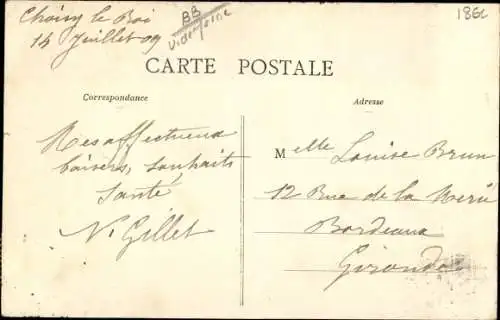 Choisy le Roi
14 Juillet 09
BB
186c
CARTE POSTALE
Correspondance
Adresse
Mes affectueux
baisers, souhaits
santé
N. Gillet
Melle Louise Brun
12 Rue de la
Bordeaux
Gironde